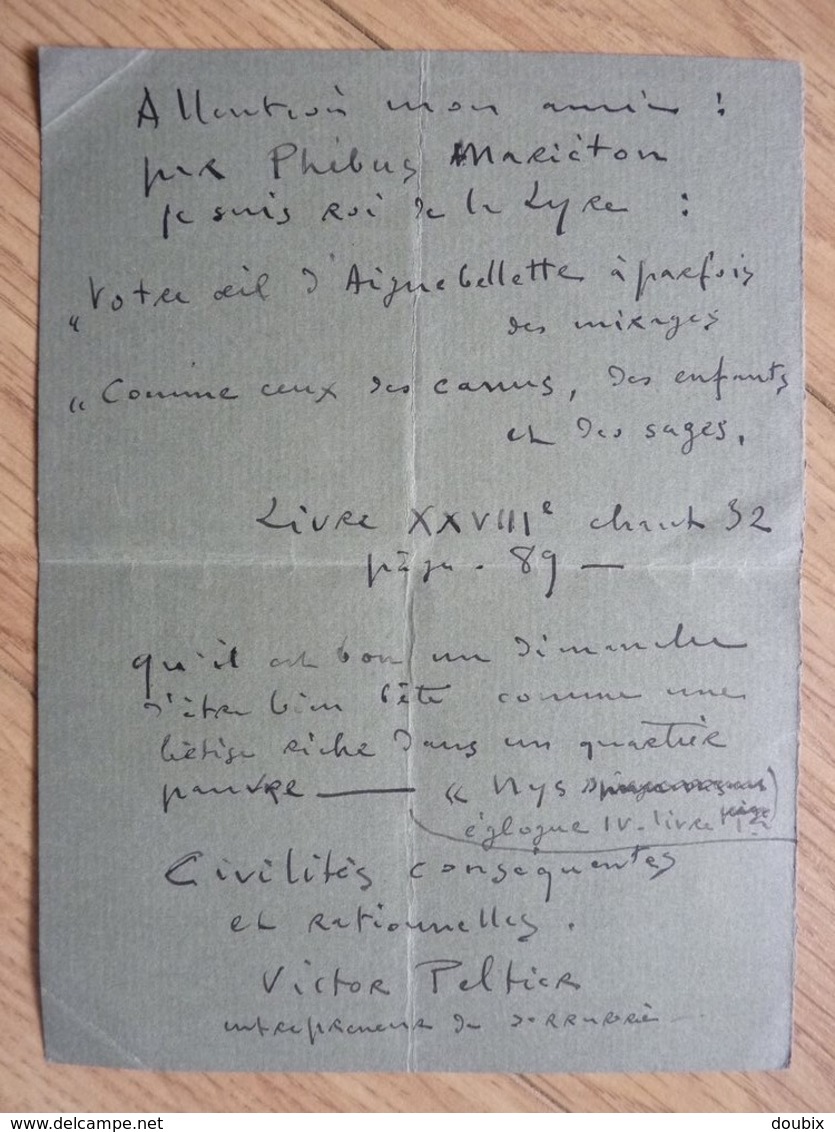 Attention mon ami :
par Phébus Mariéton
je suis roi de la Lyre :
"Votre œil d'Aiguebellette à parfois
des mirages
"Comme ceux des canus, des enfants
et des sages.
Livre XXVIIIe chant 32
page . 89 —
qu'il est bon un dimanche
d'être bien bête comme une
bêtise riche dans un quartier
pauvre — " Nys
églogue IV. livre
Civilités conséquentes
et rationnelles.
Victor Peltier
entrepreneur de serrurerie
Delcampe.net
doubix